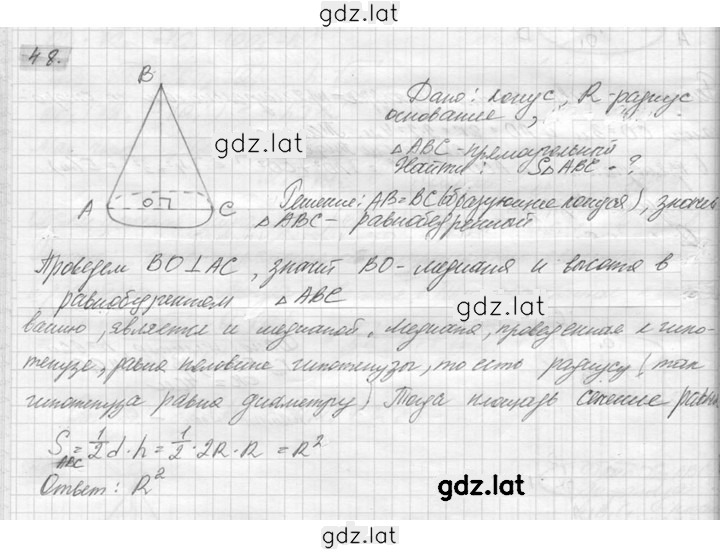 gdz.lat
48.
B
A
O
C
gdz.lat
Дано: конус, R-радиус
основание,
△ABC - прямоугольный
Найти: S△ABC - ?
Решение: AB=BC(образующие конуса), значит
△ABC - равнобедренной
Проведем BO⊥AC, значит BO-медиана и высота в
равнобедренном △ABC
gdz.lat
ванию, является и медианой. Медиана, проведенная к гипо-
тенузе, равна половине гипотенузы, то есть радиусу (так
гипотенуза равна диаметру) Тогда площадь сечение равна
S ABC = 1/2 d·h = 1/2 · 2R·R = R²
Ответ: R²
gdz.lat
gdz.lat